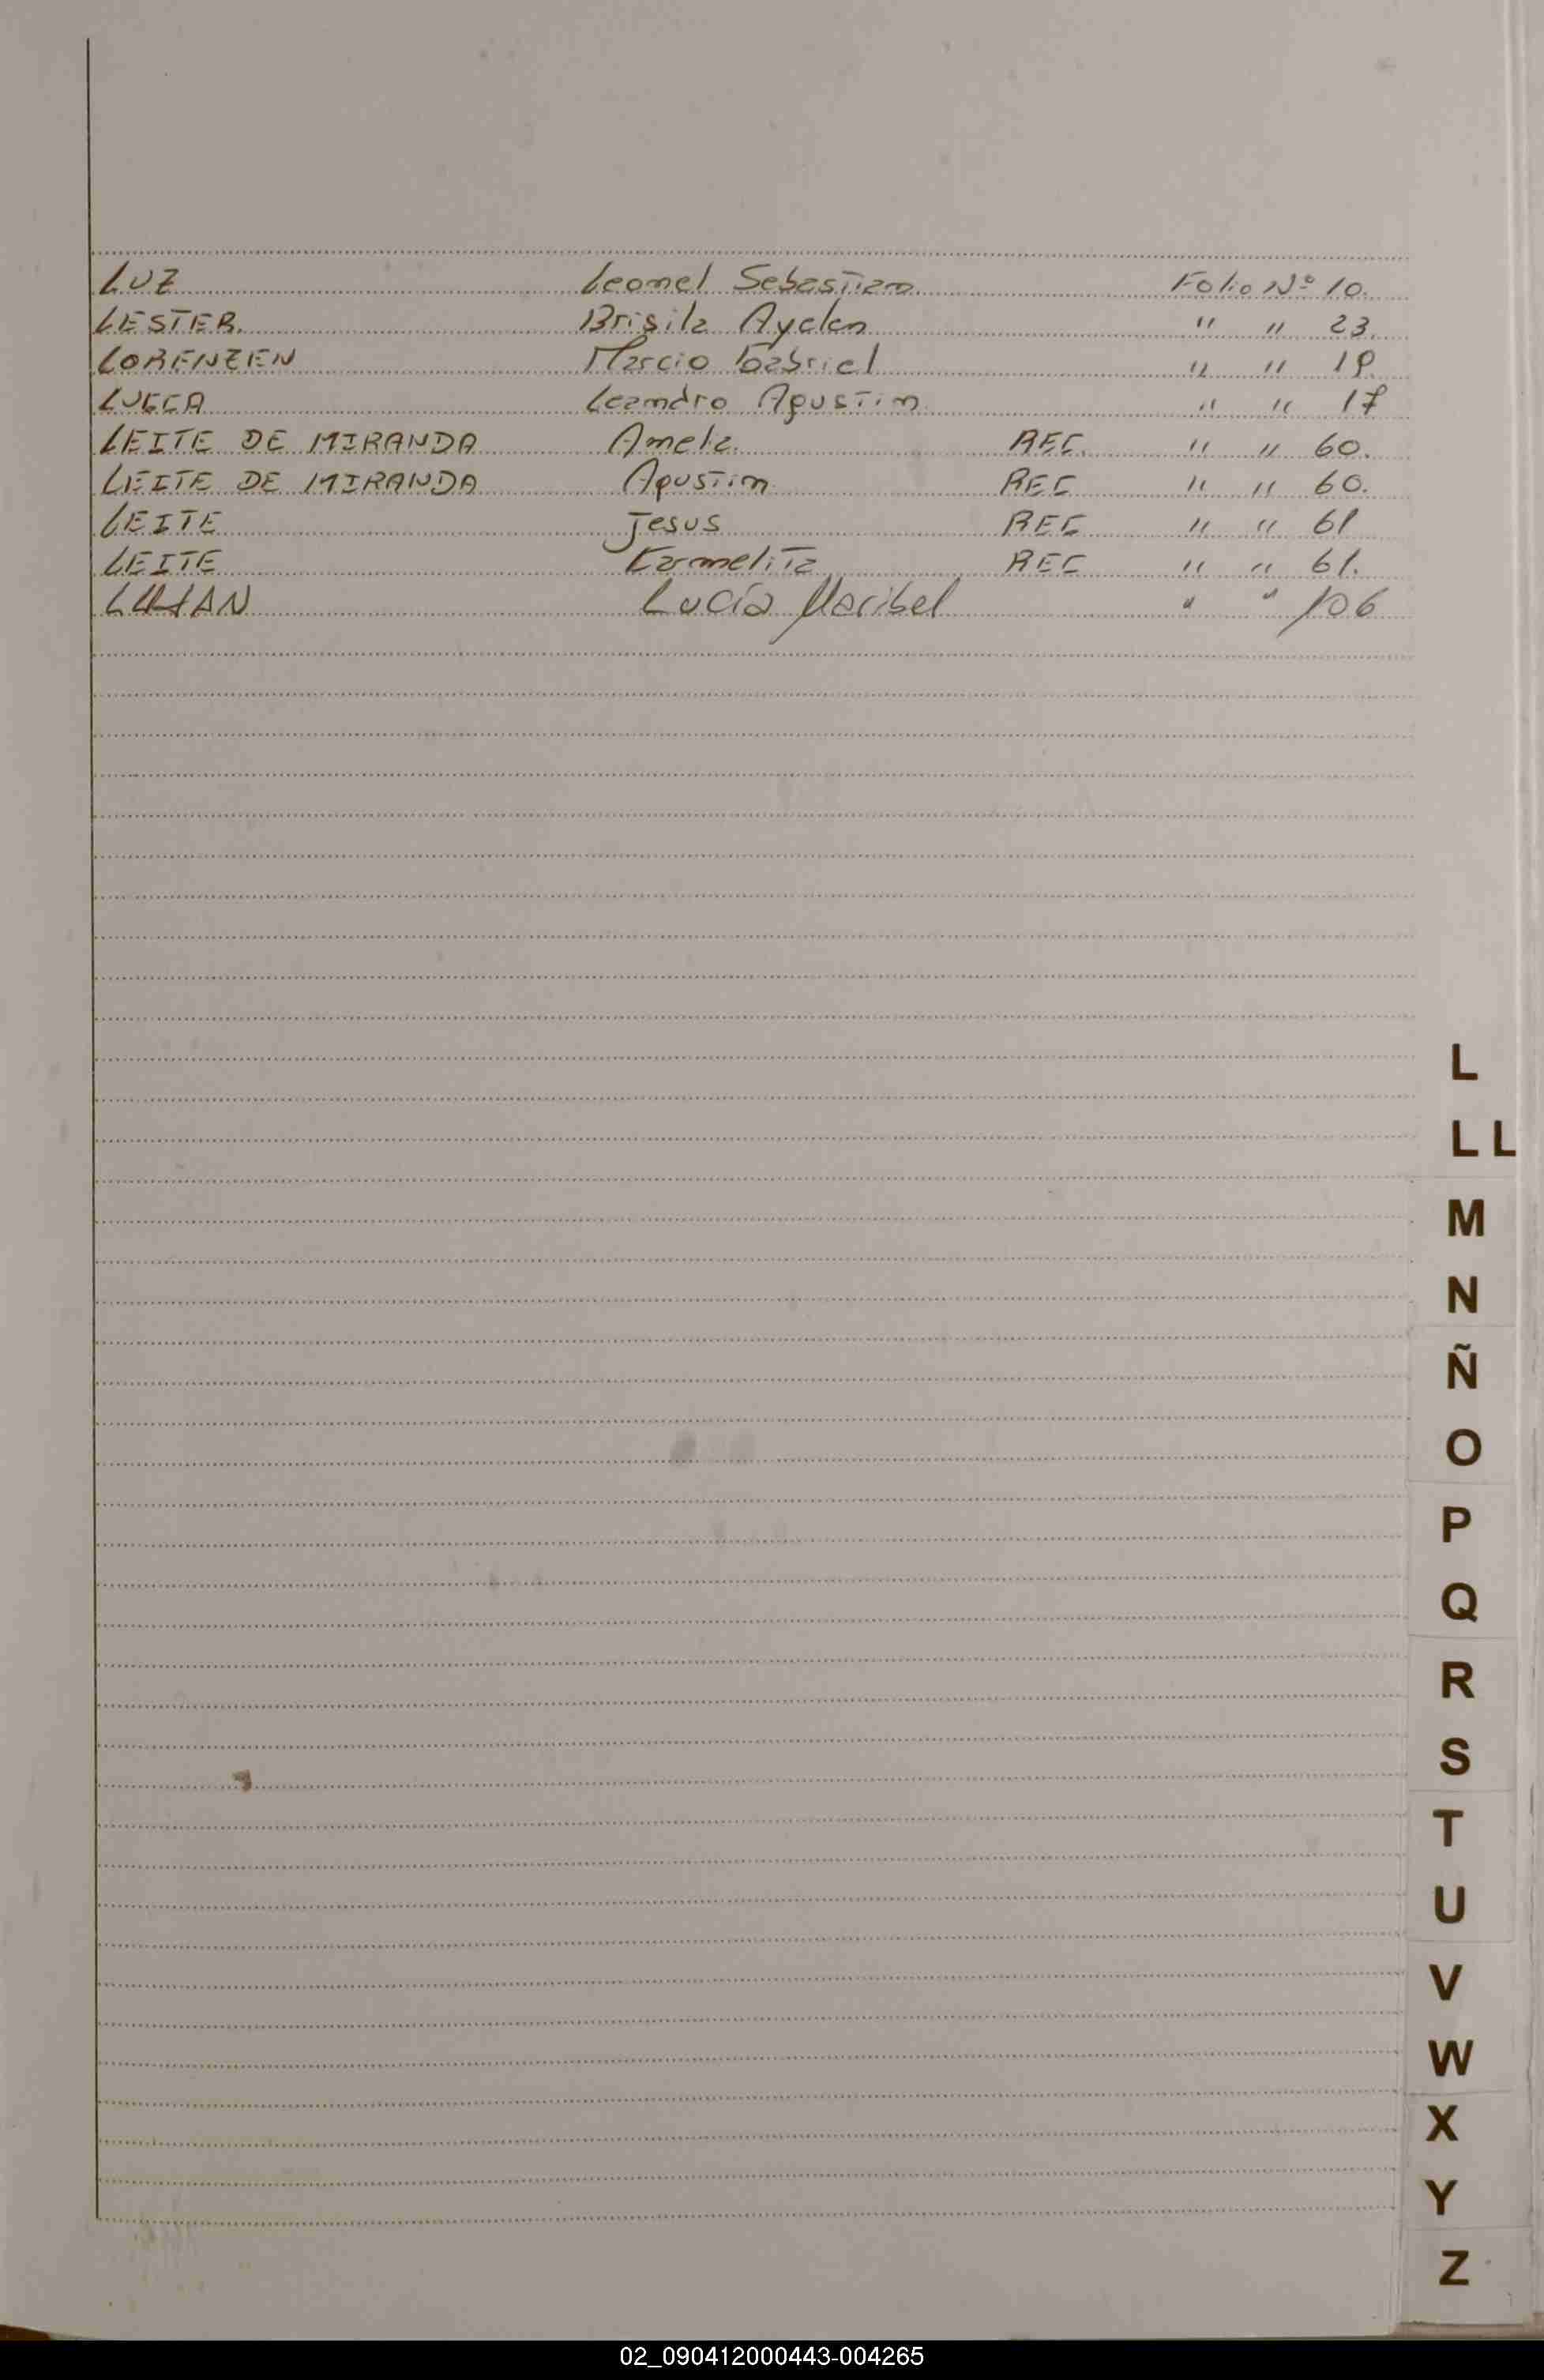 LUZ Leonel Sebastian Folio Nº 10.
LESTER. Brisila Ayelen " " 23.
LORENZEN Marcio Gabriel " " 19.
LUCCA Leandro Agustin " " 17
LEITE DE MIRANDA Amelia. REC. " " 60.
LEITE DE MIRANDA Agustin REC " " 60.
LEITE Jesus REC " " 61
LEITE Karmelita REC " " 61.
LUJAN Lucía Maribel " " 106
L
LL
M
N
Ñ
O
P
Q
R
S
T
U
V
W
X
Y
Z
02_090412000443-004265